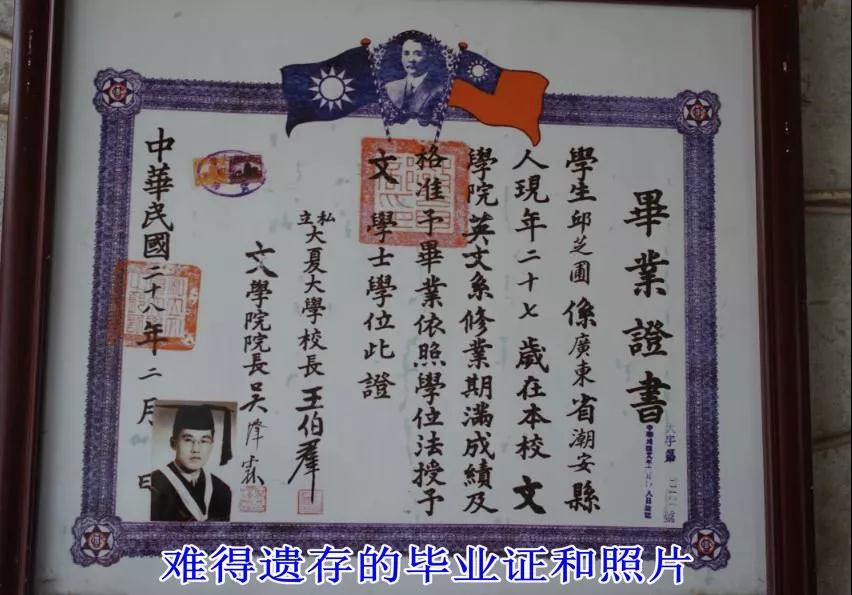 畢業證書
學生邱芝圃係廣東省潮安縣
人現年二十七歲在本校文
學院英文系修業期滿成績及
格准予畢業依照學位法授予
文學士學位此證
私立大夏大學校長王伯羣
文學院院長吴澤霖
中華民國二十八年二月 日
难得遗存的毕业证和照片